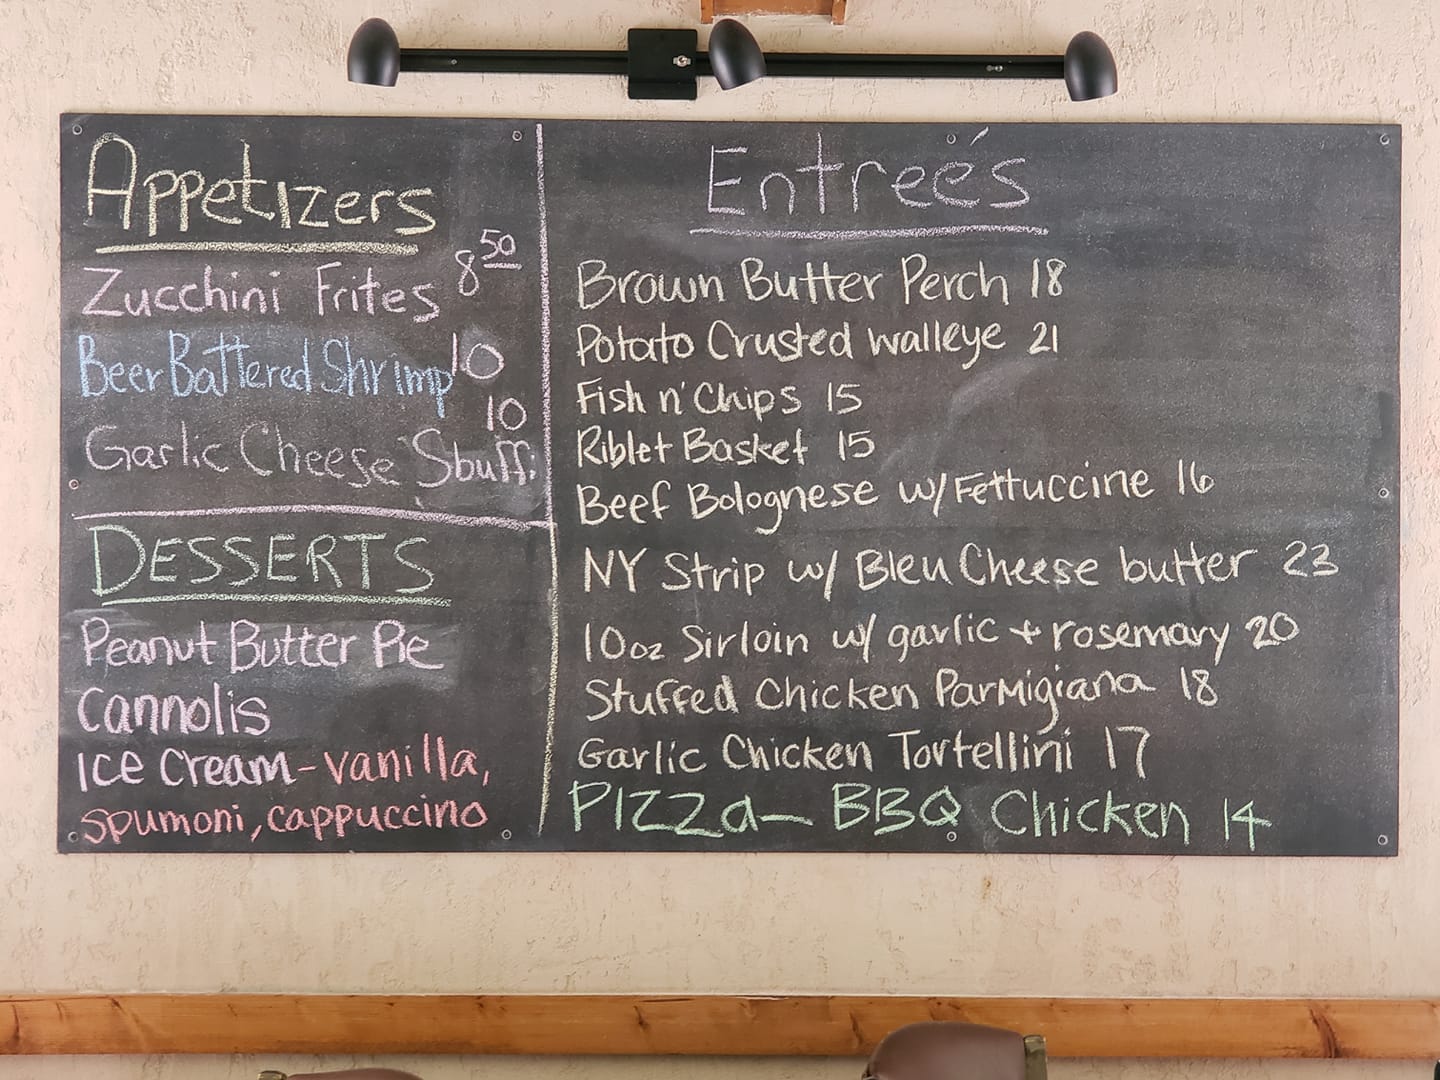 Appetizers
Zucchini Frites 8 50
Beer Battered Shrimp 10
10
Garlic Cheese
DESSERTS
Peanut Butter Pie
Cannolis
Ice Cream - vanilla,
spumoni, cappuccino
Entreés
Brown Butter Perch 18
Potato Crusted Walleye 21
Fish n' Chips 15
Riblet Basket 15
Beef Bolognese w/ Fettuccine 16
NY Strip w/ Bleu Cheese butter 23
10oz Sirloin w/ garlic + rosemary 20
Stuffed Chicken Parmigiana 18
Garlic Chicken Tortellini 17
Pizza - BBQ Chicken 14